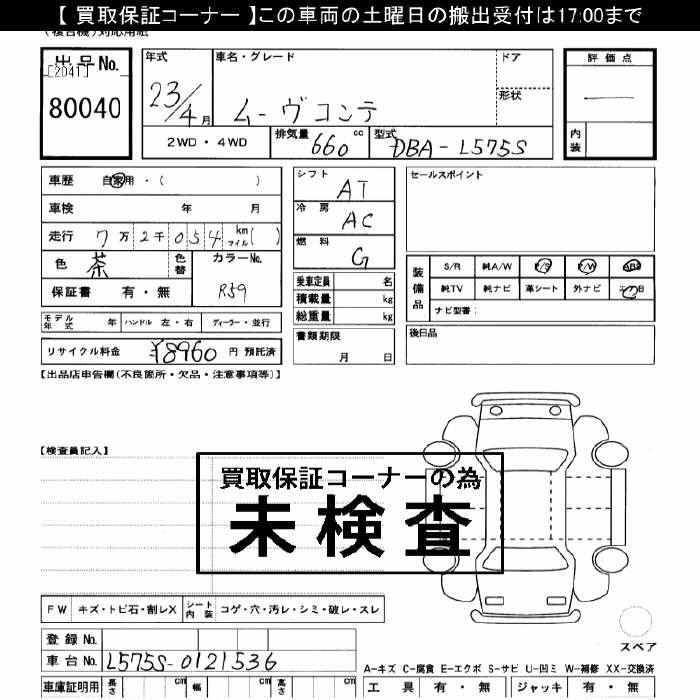 【 買取保証コーナー 】この車両の土曜日の搬出受付は17:00まで
(複合機)対応用紙
出品No.
[2041]
80040
年式
23/4月
車名・グレード
ムーヴコンテ
ドア
形状
2WD・4WD
排気量 660 cc
型式 DBA-L575S
評価点
内装
車歴 自家用・( )
車検 年 月
走行 7万2千054 km マイル( )
色 茶
色替
カラーNo.
R59
保証書 有・無
モデル年式 年 ハンドル 左・右 ディーラー・並行
リサイクル料金 ¥8960 円 預託済
シフト AT
冷房 AC
燃料 G
乗車定員 名
積載量 kg
総重量 kg
書類期限
月 日
セールスポイント
装備品
S/R 純A/W P/S P/W ABS
純TV 純ナビ 革シート 外ナビ エアB
ナビ型番:
後日品
【出品店申告欄(不良箇所・欠品・注意事項等)】
【検査員記入】
買取保証コーナーの為
未検査
FW キズ・トビ石・割レX
シート内装 コゲ・穴・汚レ・シミ・破レ・スレ
スペア
登録No.
車台No. L575S-0121536
車庫証明用 長さ cm 幅 cm 高さ cm
A-キズ C-腐食 E-エクボ S-サビ U-凹ミ W-補修 XX-交換済
工具 有・無 ジャッキ 有・無